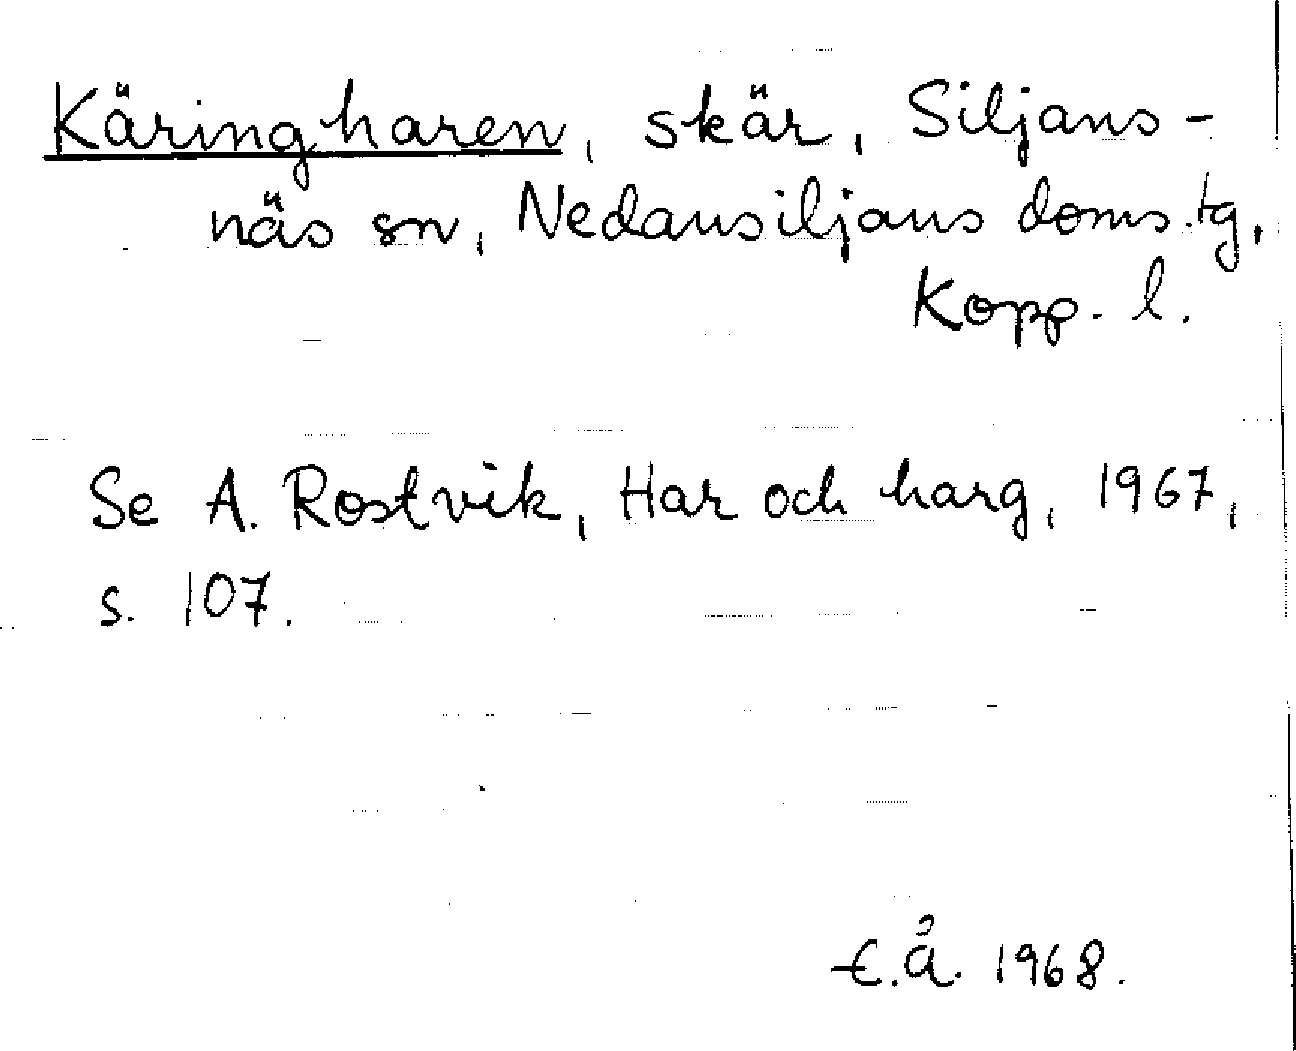 Käringharen, skär, Siljans-
näs sn, Nedansiljans doms.tg,
Kopp. l.
Se A. Rostvik, Har och harg, 1967,
s. 107.
E.Å. 1968.